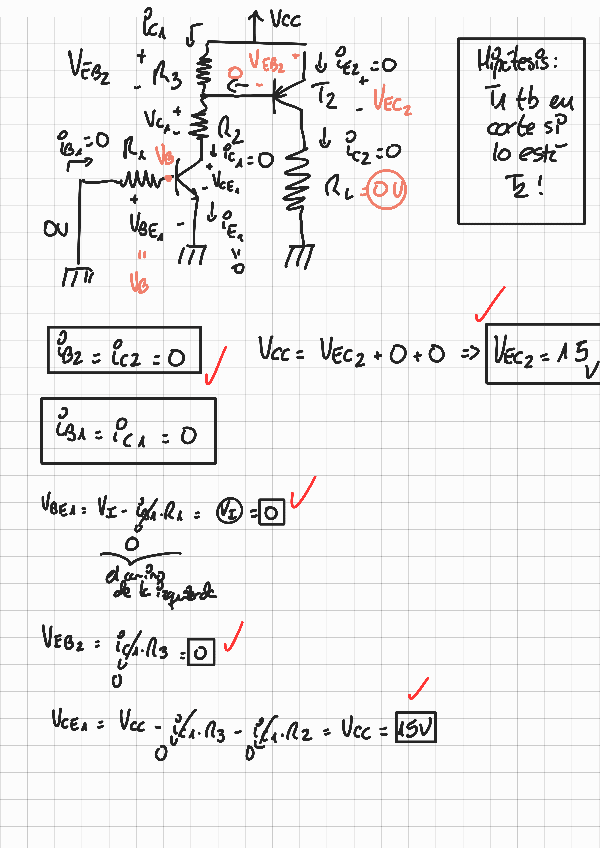 iC1
VCC
VEB2
+
-
R3
0
VEB2
+
-
iE2=0
T2
+
-
VEC2
VC1
+
-
R2
iB1=0
R1
VB
iC1=0
+
-
VCE1
iC2=0
RL
=0V
0V
+
VBE1
-
iE1
"
0
"
VB
Hipótesis:
T1 tb en
corte si
lo está
T2!
iB2 = iC2 = 0
VCC = VEC2 + 0 + 0 => VEC2 = 15V
iB1 = iC1 = 0
VBE1 = VI - iB1·R1 = VI = 0
0
camino
de la izquierda
VEB2 = iC1·R3 = 0
0
VCE1 = VCC - iC1·R3 - iC1·R2 = VCC = 15V
0 0